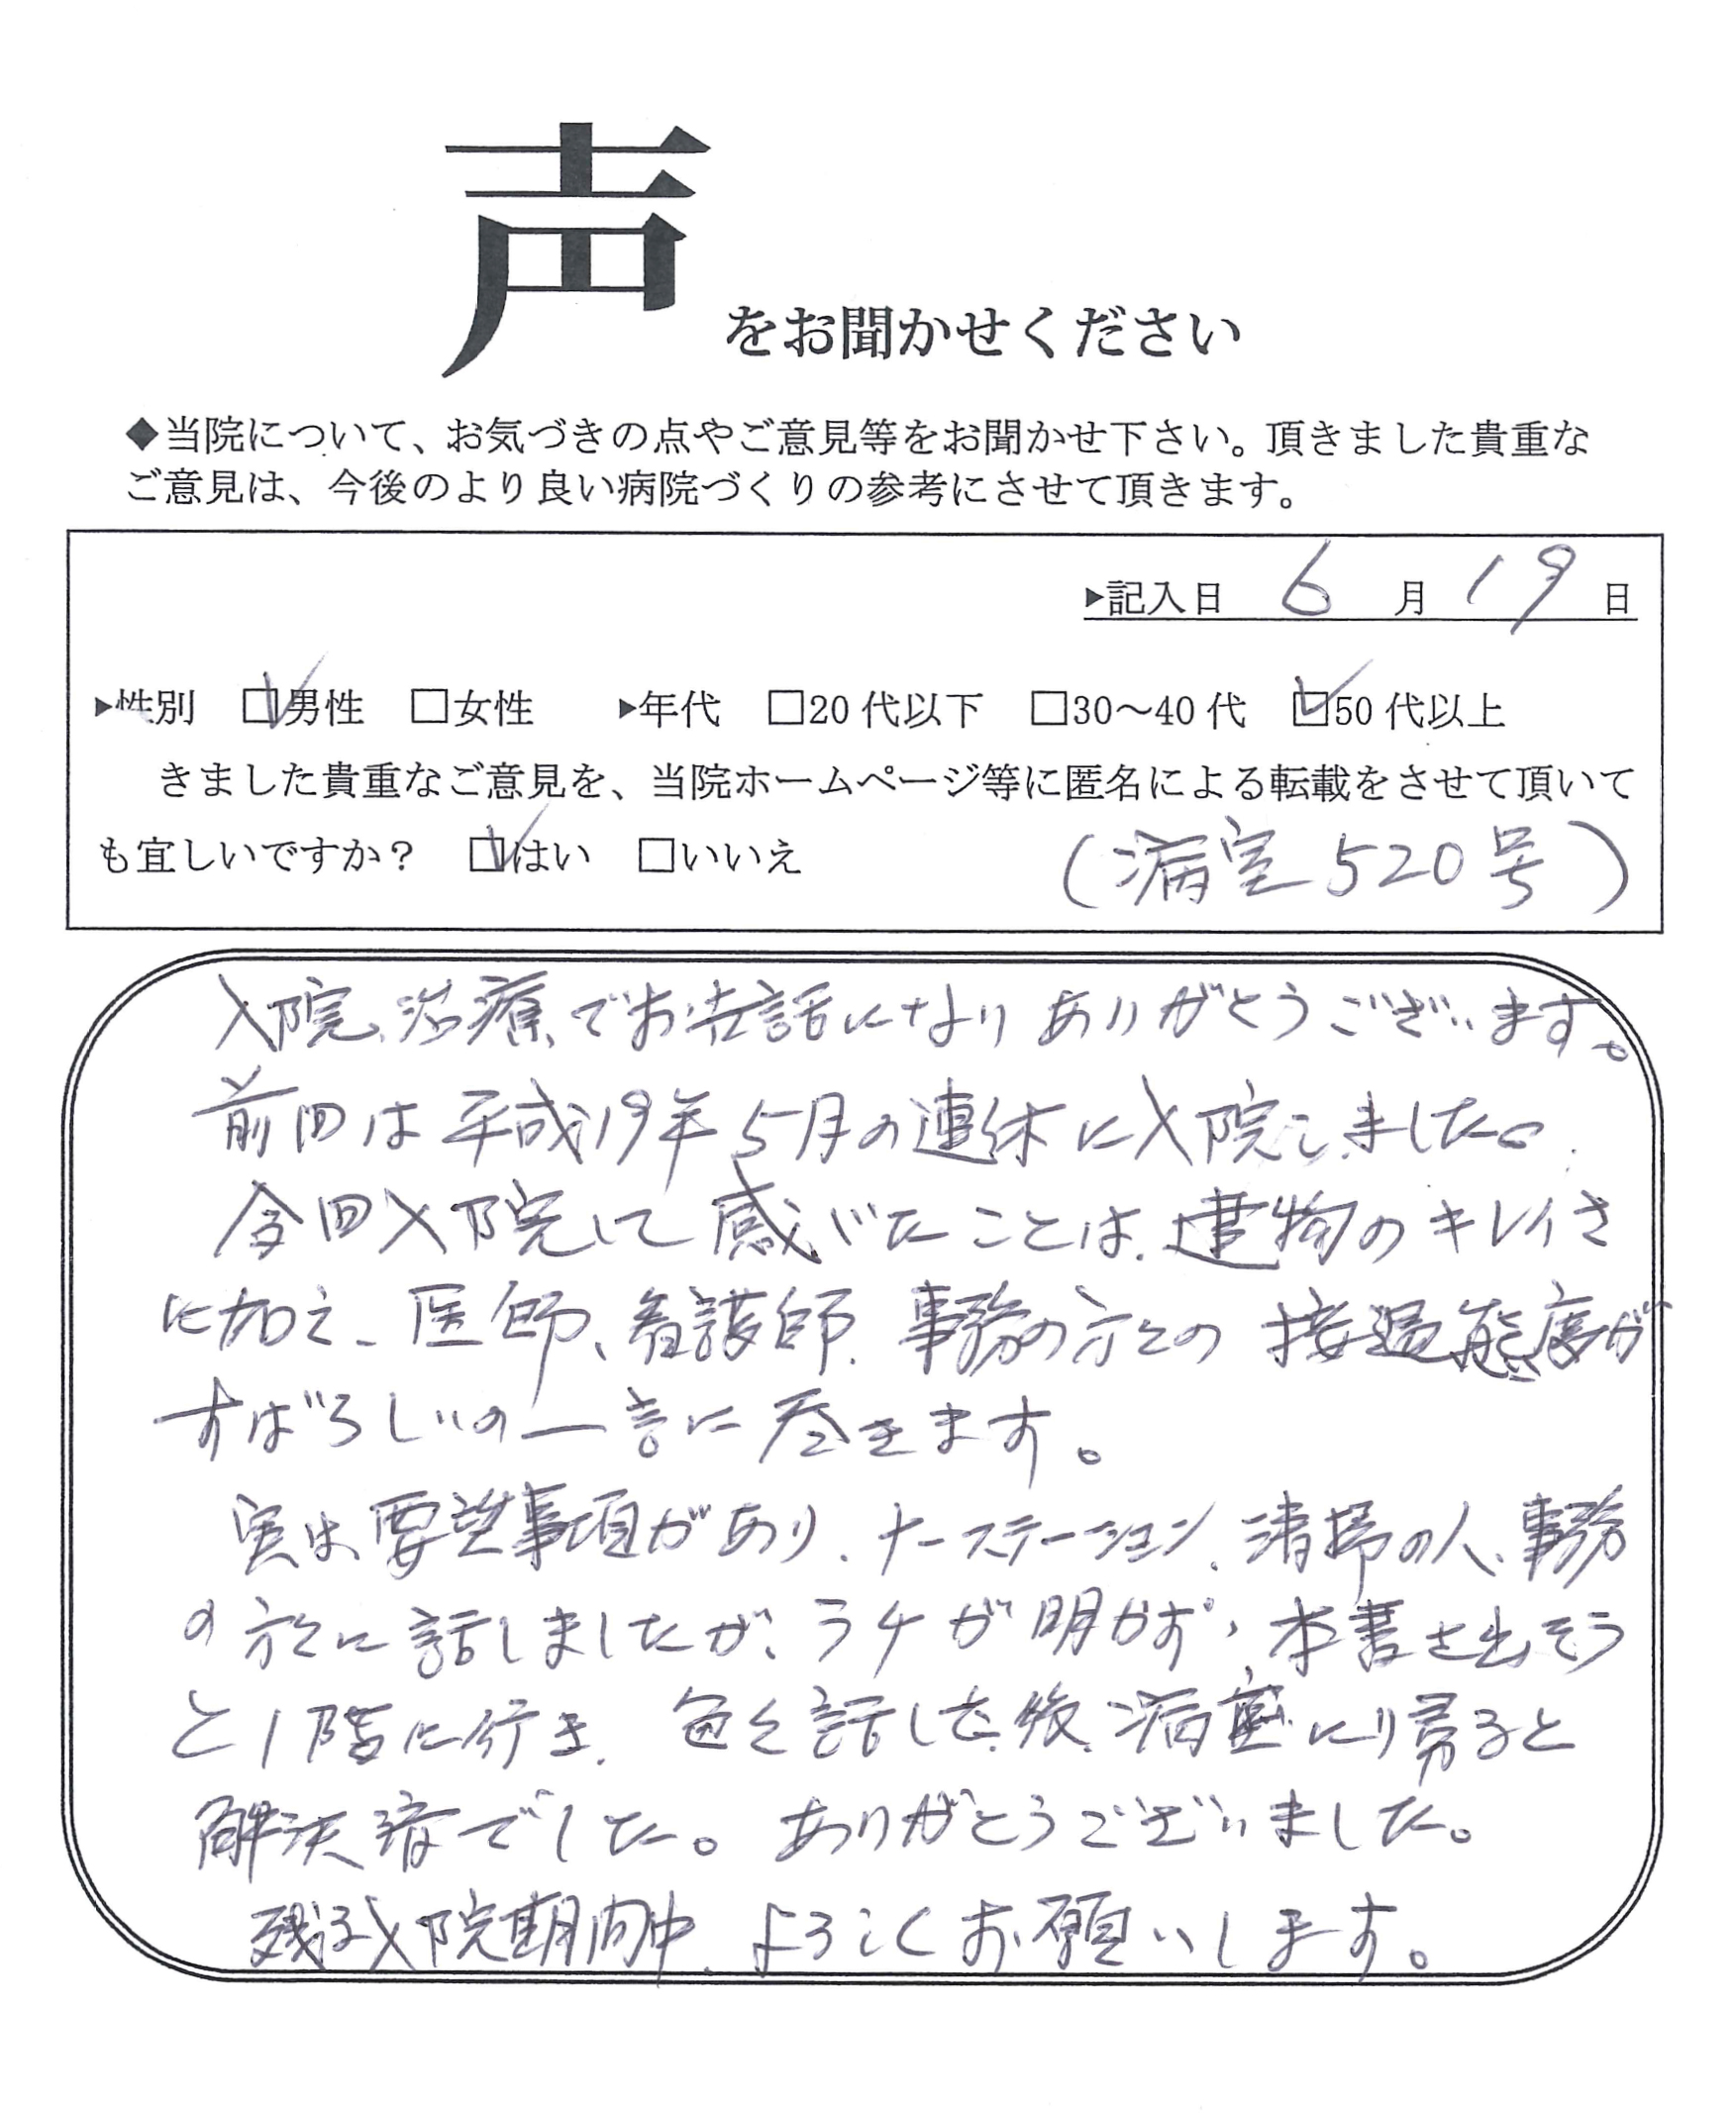 声をお聞かせください
◆当院について、お気づきの点やご意見等をお聞かせ下さい。頂きました貴重な
ご意見は、今後のより良い病院づくりの参考にさせて頂きます。
▶記入日 6 月 19 日
▶性別 ☑男性 □女性 ▶年代 □20代以下 □30～40代 ☑50代以上
きました貴重なご意見を、当院ホームページ等に匿名による転載をさせて頂いて
も宜しいですか？ ☑はい □いいえ (病室520号)
入院、治療でお世話になりありがとうございます。
前回は平成19年5月の連休に入院しました。
今回入院して感じたことは、建物のキレイさ
に加え、医師、看護師、事務の方々の接遇態度が
すばらしいの一言に尽きます。
実は、要望事項があり、ナーステーション、清掃の人、事務
の方々に話しましたが、ラチが明かず、本書を出そう
と1階に行き、色々話した後、病室に帰ると
解決済でした。ありがとうございました。
残る入院期間中、よろしくお願いします。